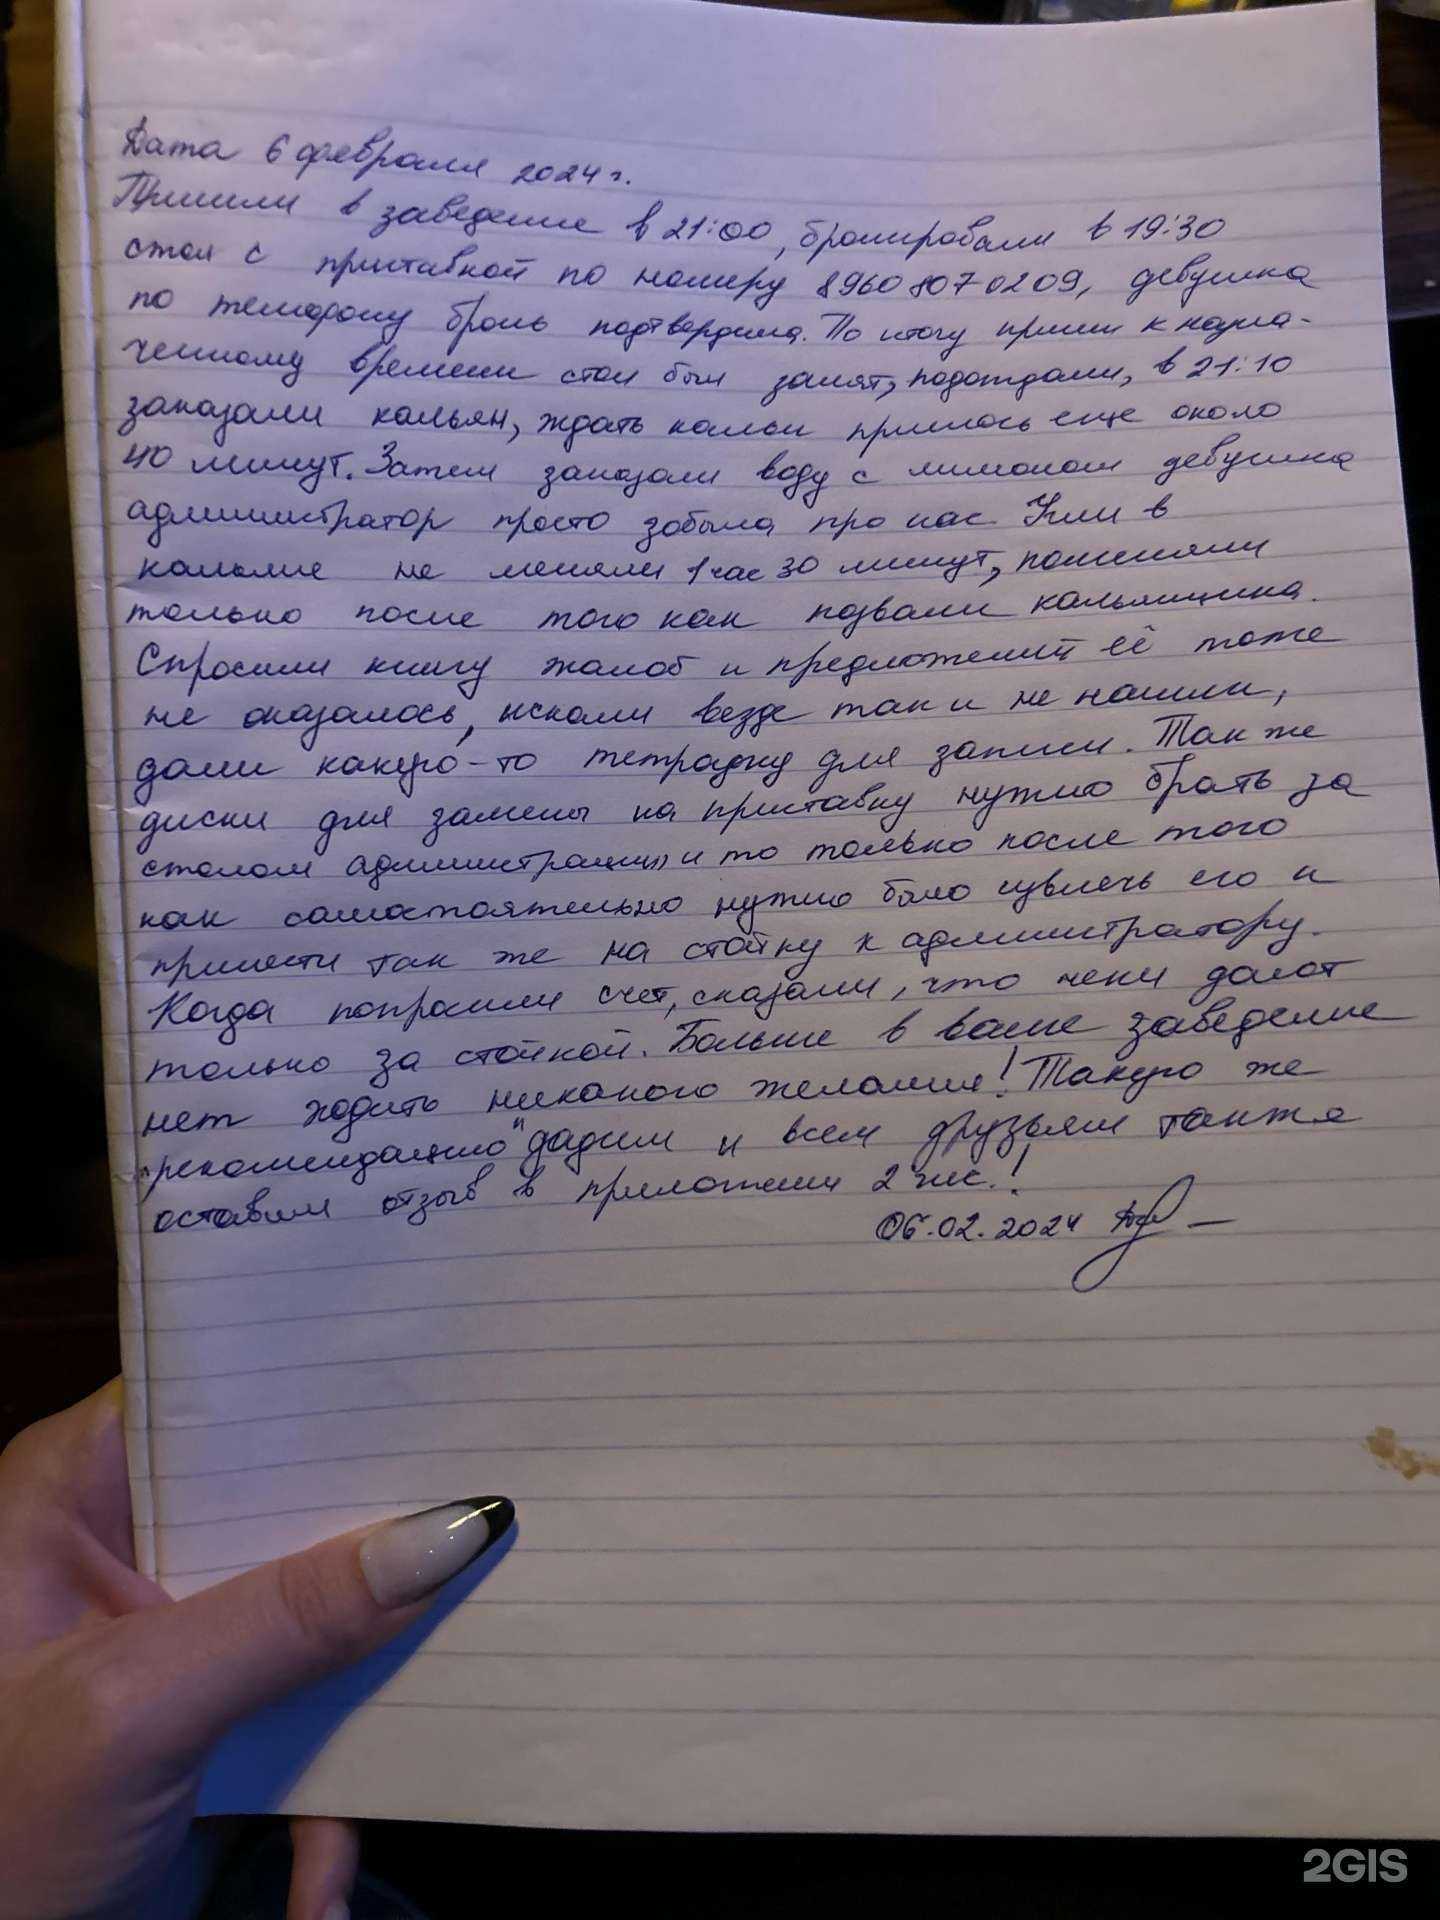 Дата 6 февраля 2024 г.
Пришли в заведение в 21:00, бронировали в 19:30
стол с приставкой по номеру 89608070209, девушка
по телефону бронь подтвердила. По итогу пришли к назна-
ченному времени стол был занят, подождали, в 21:10
заказали кальян, ждать кальян пришлось еще около
40 минут. Затем заказали воду с лимоном девушка
администратор просто зобыла про нас. Угли в
кальяне не меняли 1 час 30 минут, поменяли
только после того как позвали кальянщика.
Спросили книгу жалоб и предложений её тоже
не оказалось, искали везде так и не нашли,
дали какую-то тетрадку для записи. Так же
диски для замены на приставку нужно брать за
столом администрации и то только после того
как самостоятельно нужно было извлечь его и
принести так же на стойку к администратору.
Когда попросили счет, сказали, что чеки далют
только за стойкой. Больше в ваше заведение
нет ходить никакого желания! Такую же
"рекомендацию" дадим и всем друзьям также
оставим отзыв в приложении 2 гис.!
06.02.2024
2GIS